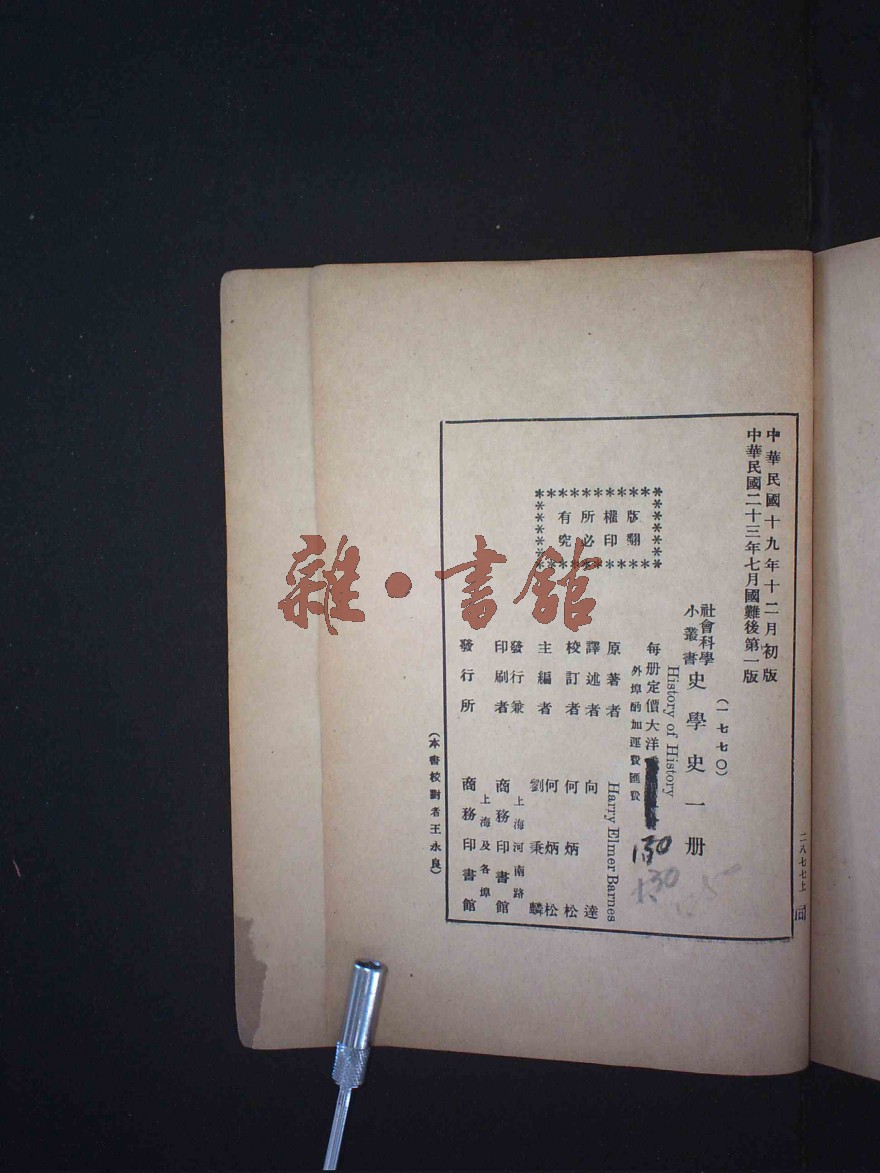 中華民國十九年十二月初版
中華民國二十三年七月國難後第一版
二八七七上
(一七七〇)
社會科學
小叢書
史學史一册
History of History
每册定價大洋
130
130
外埠酌加運費匯費
版權所有
翻印必究
原著者 Harry Elmer Barnes
譯述者 向達
校訂者 何炳松
主編者 何炳松
劉秉麟
發行兼
印刷者
上海河南路
商務印書館
發行所
上海及各埠
商務印書館
(本書校對者王永良)
雜·書館